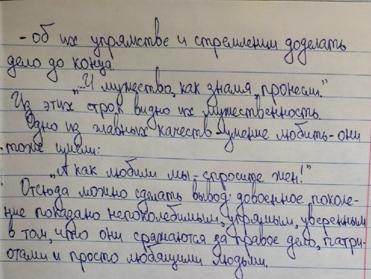 - об их упрямстве и стремлении доделать
дело до конца.
„И мужество, как знамя, пронесли."
Из этих строк видно их мужественность.
Одно из главных качеств - умение любить - они
тоже имели:
„А как любили мы - спросите жен!"
Отсюда можно сделать вывод: довоенное поколе-
ние показано непоколебимым, упрямым, уверенным
в том, что они сражаются за правое дело, патри-
отами и просто любящими людьми.